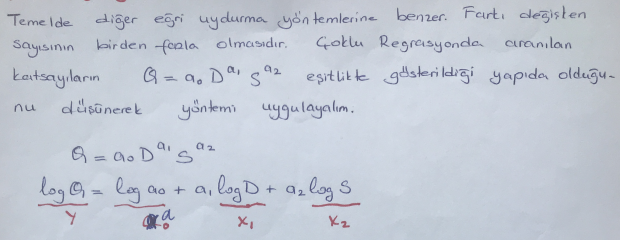 Temelde diğer eğri uydurma yöntemlerine benzer. Farkı değişken
sayısının birden fazla olmasıdır. Çoklu Regrasyonda aranılan
katsayıların Q = a₀ D^a₁ S^a₂ eşitlikte gösterildiği yapıda olduğu-
nu düşünerek yöntemi uygulayalım.
Q = a₀ D^a₁ S^a₂
log Q = log a₀ + a₁ log D + a₂ log S
Y X₁ X₂